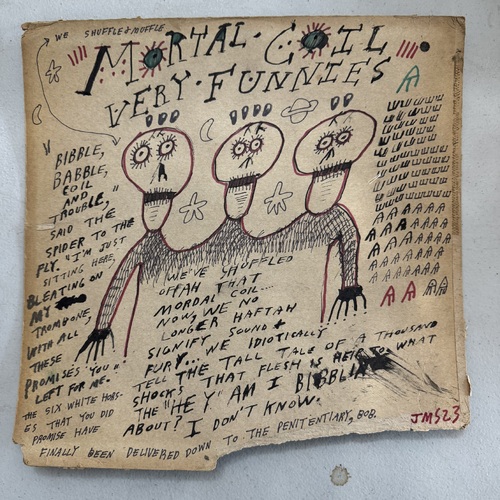 WE SHUFFLE & MUFFLE
MORTAL · COIL
VERY · FUNNIES
BIBBLE,
BABBLE,
COIL
AND
TROUBLE,"
SAID THE
SPIDER TO THE
FLY. "I'M JUST
SITTING HERE,
BLEATING ON
MY
TROMBONE,
WITH ALL
THESE
PROMISES "YOU"
LEFT FOR ME.
THE SIX WHITE HORS-
ES THAT YOU DID
PROMISE HAVE
FINALLY BEEN DELIVERED DOWN TO THE PENITENTIARY, BOB.
WE'VE SHUFFLED
OFFAH THAT
MORDAL COIL...
NOW, WE NO
LONGER HAFTAH
SIGNIFY SOUND +
FURY... WE IDIOTICALLY
TELL THE TALL TALE OF A THOUSAND
SHOCKS THAT FLESH IS HEIR TO WHAT
THE "HEY" AM I
ABOUT? I DON'T KNOW.
JMS23